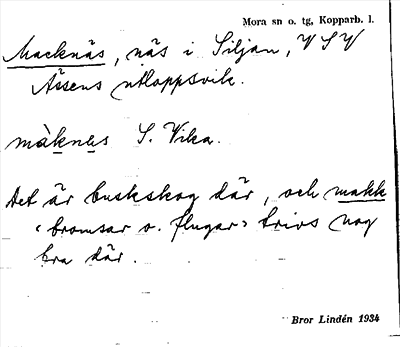 Mora sn o. tg, Kopparb. l.
Macknäs, näs i Siljan, VSV
Åsens utloppsvik.
màknes S. Vika.
Det är buskskog där, och makk
‹ bromsar o. flugar › trivs nog
bra där.
Bror Lindén 1934